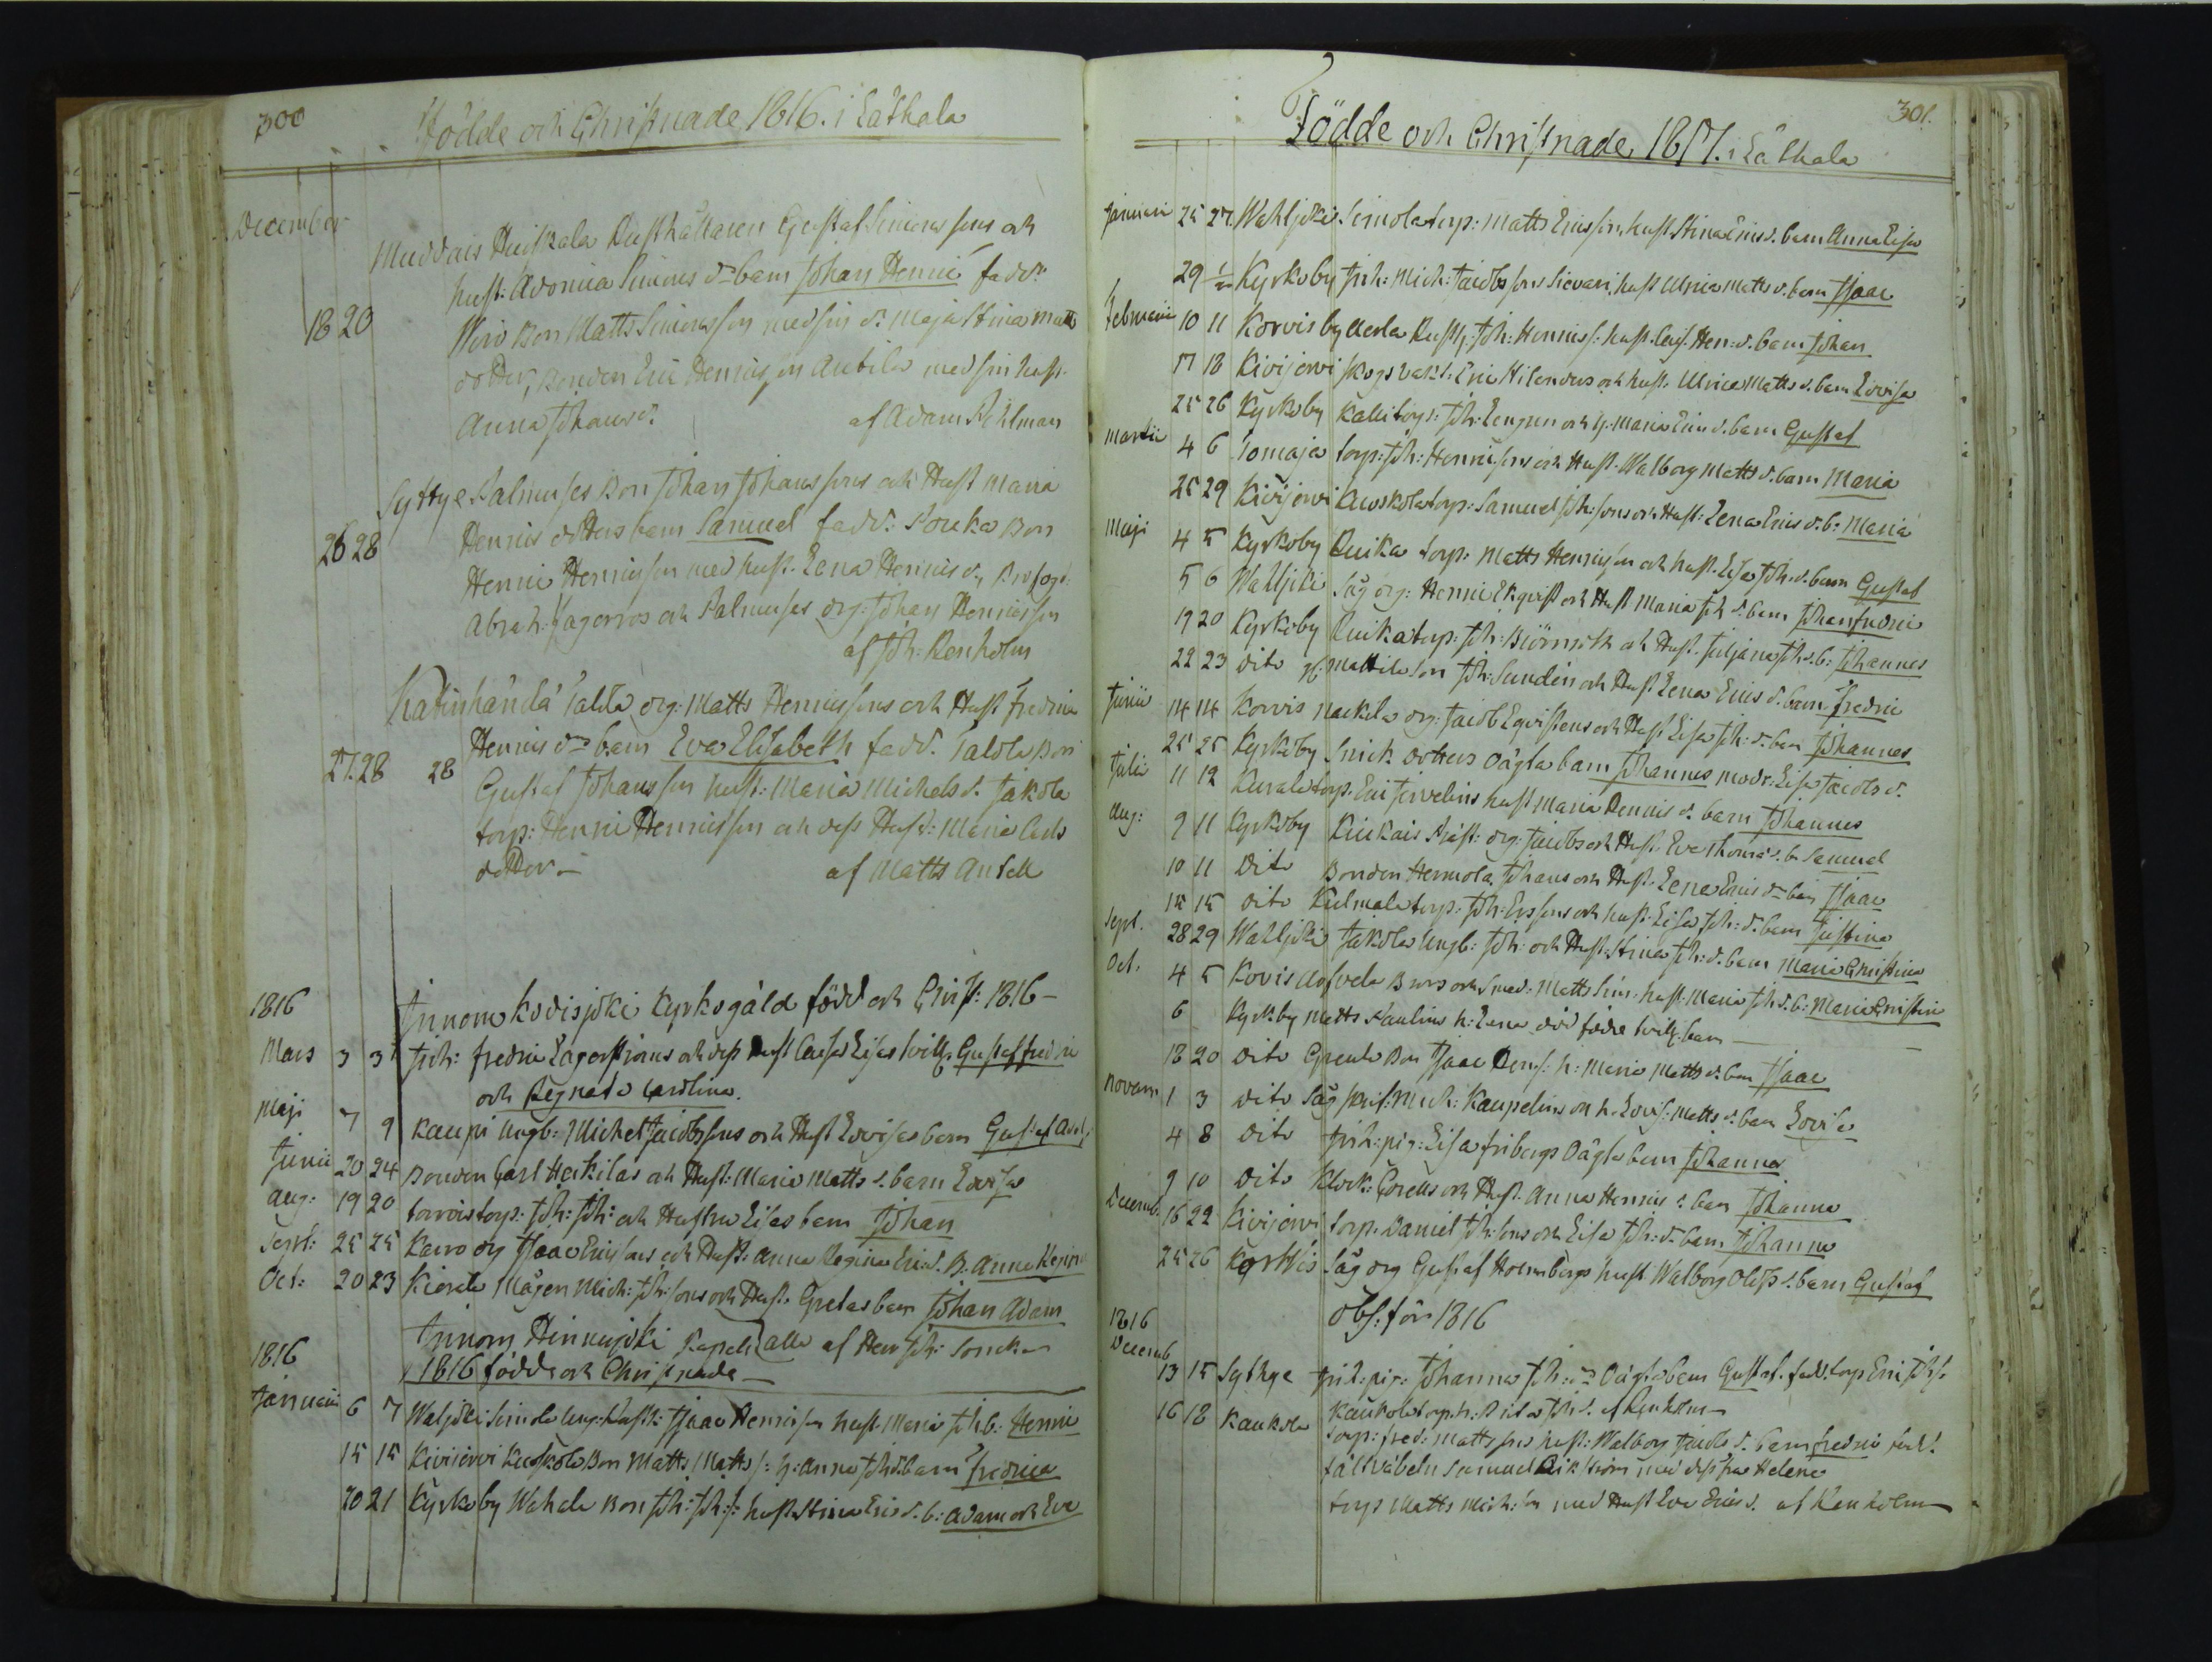 300
Födde och Christnade 1816. i Låthala
December
Muddais Huiskala Rusthållaren Gustaf Simons sons och
hust: Adonica Simons dr barn Johan Henric fadd:
18 20 Wirv Bon Matts Simonsson med sin dr Maja Stina Matts
dotter, Bonden Eric Henricsson Antila med sin hust.
Anna Johansdr af Adam Pihlman
Syttye Palmuses Bon Johan Johanssons och Hust Maria
26 28 Henrics dotters barn Samuel fadd: Bon
Henric Henricsson med hust. Lena Henricsd.,
Abrah: och Palmuses drg: Johan Henricsson
af Joh: Renholm
Katinhändä Talola drg: Matts Henricssons och Hust Fredrica
Henrics dr barn Eva Elisabeth fadd. Talola Bon
27. 28 28 Gustaf Johansson hust: Maria Michelsd. Jakola
torp: Henric Henricsson och dess Hust: Maria Carls
dotter – af Matts Antell
1816 Innom Koijoki Kyrkogäld född och Christ: 1816 –
Mars 3 3 Joh: Fredric Lagerstjernas och dess Hust Caisa Lisas tvill. Gustaf Fredric
och Regnata Carolina.
Maji 7 9 Kaupi ungb: Michel Jacobssons och Hust Lovisas barn Gustaf Adolf
Junii 20 24 Bonden Carl Heikilas och Hust: Maria Matts d. barn Lovisa
Aug: 19 20 torp: Joh: Joh: och Hustru Lisas barn Johan
Sept: 25 25 Karro drg Isaac Ericssons och Hust: Anna Regina Ericsd. B. Anna Regina
Oct: 20 23 Kierala Mågen Mich: Joh: sons och Hust. Gretas barn Johan Adam
Innom Hinnerjoki Kapell alla af Herr Joh: Lonck
1816 1816 födde och Christnade –
Januarii 6 7 Waljoki Simola ung: Rusth: Isaac Henricsson hust. Maria Joh b: Henric
15 15 Kivijervi Kuoskola Bon Matts Matts s: h: Anna Joh d. barn Fredrica
20 21 Kyrkoby Wahala Bon Joh: Joh: s: hust. Stina Erics d. b: Adam och Eva
301.
Födde och Christnade 1817. i Låthala
Januarii 25 27 Wahljoki Simola torp: Matts Ericsson, hust. Stina Erics d. barn Anna Lisa
29 1/2 Kyrkoby Inh: Mich: Jacobssons Sievari, hust Ulrica Matts d. barn Isaac
Februarii 10 11 Korvis by Uerla Rusth: Joh: Henrics s: hust. Cais. Hen: d. barn Johan
17 18 Kivijervi skogsvakt: Eric Hilenders och hust. Ulrica Matts d. barn Lovisa
25 26 Kyrkoby Kalli torp: Joh: Lengren och h: Maria Erics d. barn Gustaf
Martii 4 6 Tomaja torp: Joh: Henricsons och Hust. Walborg Matts d. barn Maria
25 29 Kivijervi Kuoskola torp: Samuel Joh: sons och Hust: Lena Erics d. b: Maria
Maji 4 5 Kyrkoby Ruika torp: Matts Henricsson och hust. Lisa Joh: d. barn Gustaf
5 6 Wahljoki Såg drg: Henric Ekqvist och Hust Maria Joh d. barn Johan Fredric
19 20 Kyrkoby Ruika torp: Joh: Biörnroth och Hust. Juljana Joh. d. b: Johannes
22 23 dito Mattila son Joh: Sundén och Hust Lena Erics d. barn Fredric
Junii 14 14 Korvis Nackila drg: Jacob Eqvistens och Hust Lisa Joh: d. barn Johannes
25 25 Kyrkoby Snick dotters oägta barn Johannes modr: Lisa Jacobs d.
Julii 11 12 Kurala torp: Eric Jervelins hust Maria Henrics d. barn Johannes
Aug: 9 11 Kyrkoby Kiukais Präst: drg: Jacobs och Hust. Eva Thomæ d. b. Samuel
10 11 Dito Bonden Hermola Johans och Hust. Lena Erics dr barn Isaac
15 15 dito Kulmala torp: Joh: Ers sons och hust. Lisa Joh: d. barn Justina
Sept. 28 29 Wahljoki Jakola Ungb: Joh: och Hust. Stina Joh: d. barn Maria Christina
Oct. 4 5 Kovis Matts Sim: hust. Maria Joh d. b: Maria Christin
6 Kyrkby Matts Paulins h: Lena död födde tvill. barn —
18 20 dito Greula Bon Isaac Hens: h: Maria Matts d. barn Isaac
Novem 1 3 dito Såg Mich: Kaupelins och h. Lovis: Matts d: barn Lovisa
4 8 dito Inh: pig: Lisa Fribergs oägta barn Johanna
9 10 dito Klock: Corells och Hust. Anna Henrics d. barn Johanna
Decemb. 16 22 Kivijervi torp. Daniel Joh: sons och Lisa Joh: d. barn Johanna
25 26 Korvis Såg drg Gustaf Holmbergs hust Walborg Olofs d. barn Gustaf
1816 Obs: för 1816
Decemb
13 15 Sythye Inh: pig: Johanna Joh: dr oägta barn Gustaf. fadd. torp Eric Joh s.
Kaukola torp. h: Joh d. af Renholm
16 18 Kaukola torp: Fred: Matts sons hust: Walborg Jacobs d. barn Fredric fadd:
fältväbeln Samuel Wikström med dess fru Helena
torp Matts Mich: son med Hust Eva Erics d. af Renholm